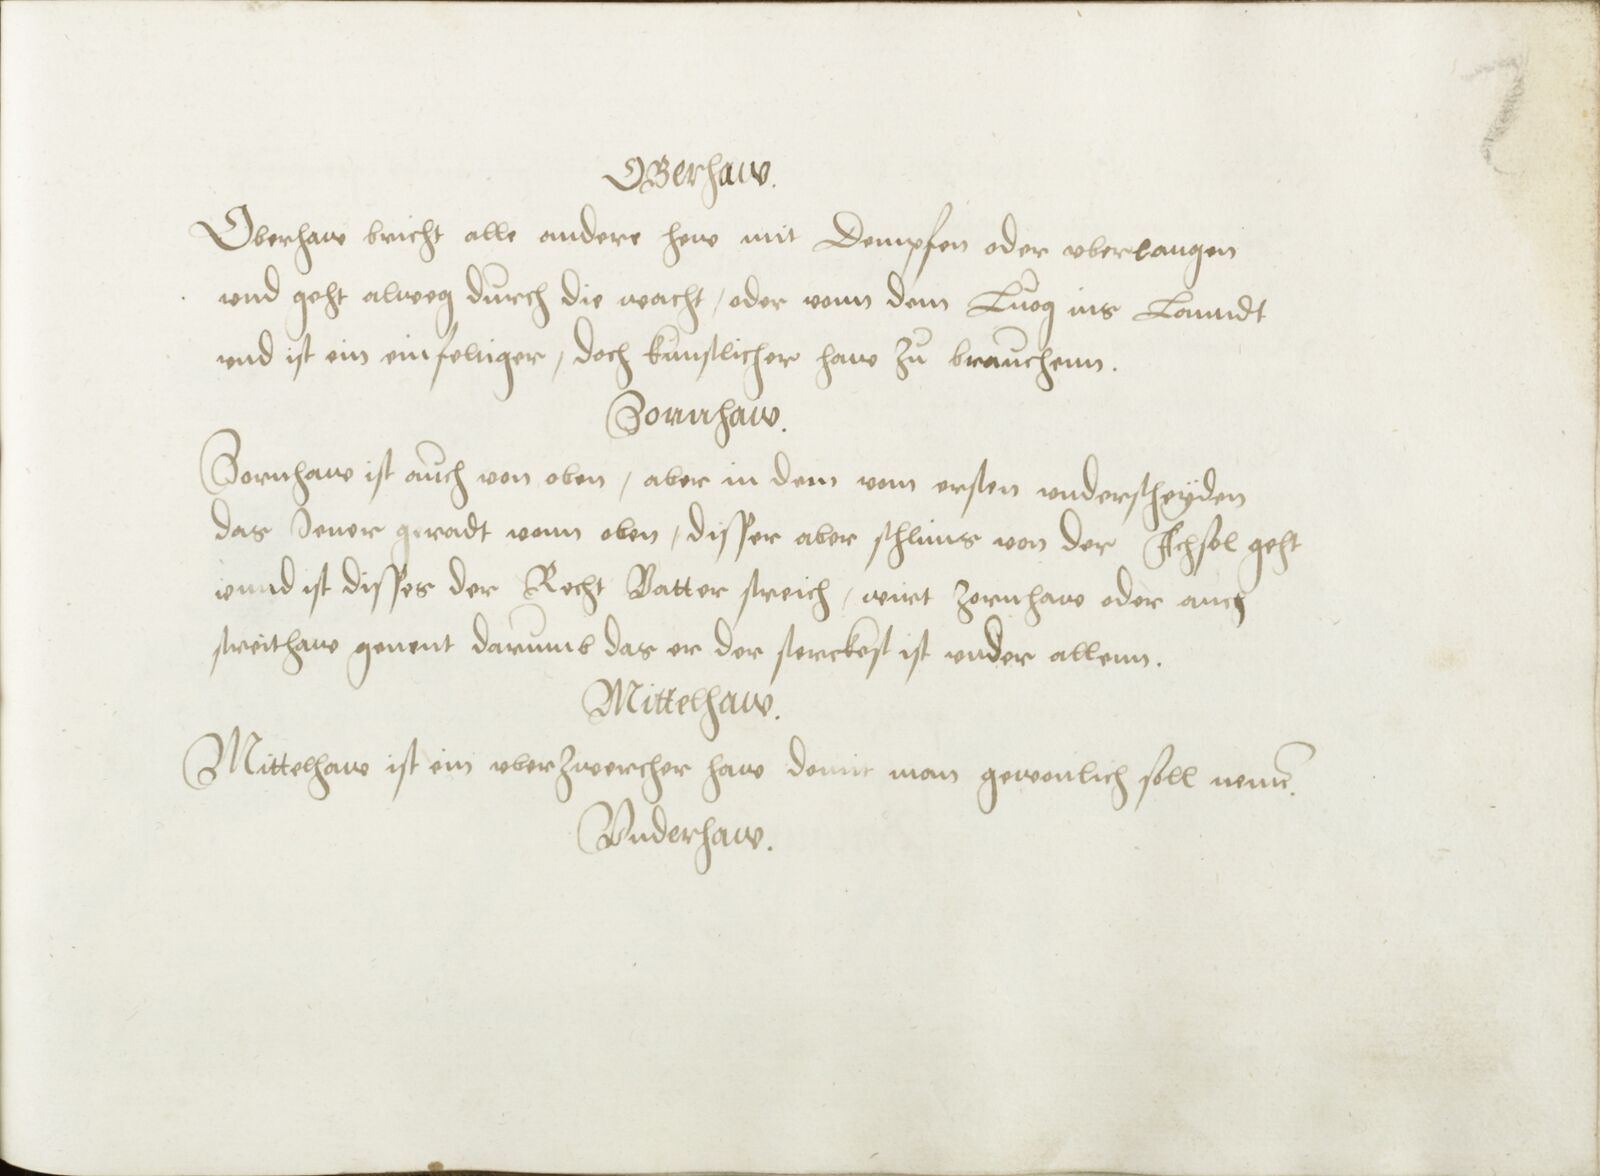 7
OBerhaw.
Oberhaw bricht alle andere hew mit Dempfen oder vberlangen
vnd geht alweg durch die wacht / oder vonn dem Luog ins Lanndt
vnd ist ein einfeltiger / doch kunstlicher haw zu brauchenn.
Zornhaw.
Zornhaw ist auch von oben / aber in dem vom ersten vnderscheÿden
das Jener geradt vonn oben / disser aber schlims von der Achsel geht
vnnd ist disses der Recht Vatter streich / wirt zornhaw oder auch
streithaw genent darumb das er der sterckest ist vnder allenn.
Mittelhaw.
Mittelhaw ist ein vberzwercher haw domit man gewonlich soll nemē.
Vnderhaw.